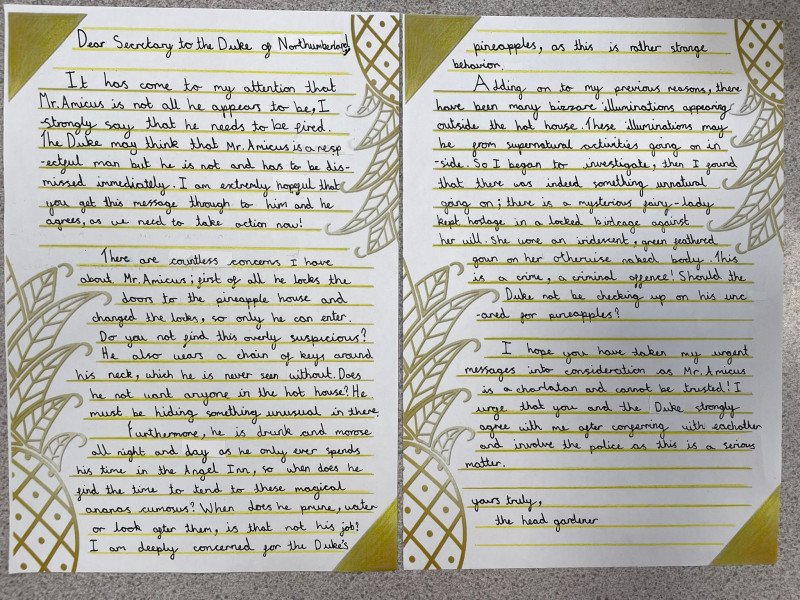 Dear Secretary to the Duke of Northumberland,
It has come to my attention that
Mr. Amicus is not all he appears to be, I
strongly say that he needs to be fired.
The Duke may think that Mr. Amicus is a resp
-ectful man but he is not and has to be dis-
missed immediately. I am extremly hopeful that
you get this message through to him and he
agrees, as we need to take action now!
There are countless concerns I have
about Mr. Amicus; first of all he locks the
doors to the pineapple house and
changed the locks, so only he can enter.
Do you not find this overly suspicious?
He also wears a chain of keys around
his neck, which he is never seen without. Does
he not want anyone in the hot house? He
must be hiding something unusual in there.
Furthermore, he is drunk and morose
all night and day as he only ever spends
his time in the Angel Inn, so when does he
find the time to tend to these magical
ananas cumous? When does he prune, water
or look after them, is that not his job?
I am deeply concerned for the Duke's
pineapples, as this is rather strange
behavior.
Adding on to my previous reasons, there
have been many bizzare illuminations appearing
outside the hot house. These illuminations may
be from supernatural activities going on in
-side. So I began to investigate, then I found
that there was indeed something unnatural
going on; there is a mysterious fairy-lady
kept hostage in a locked birdcage against
her will. She wore an iridescent, green feathered
gown on her otherwise naked body. This
is a crime, a criminal offence! Should the
Duke not be checking up on his unc
-ared for pineapples?
I hope you have taken my urgent
messages into consideration as Mr. Amicus
is a charlatan and cannot be trusted! I
urge that you and the Duke strongly
agree with me after conferring with eachother
and involve the police as this is a serious
matter.
yours truly,
the head gardener